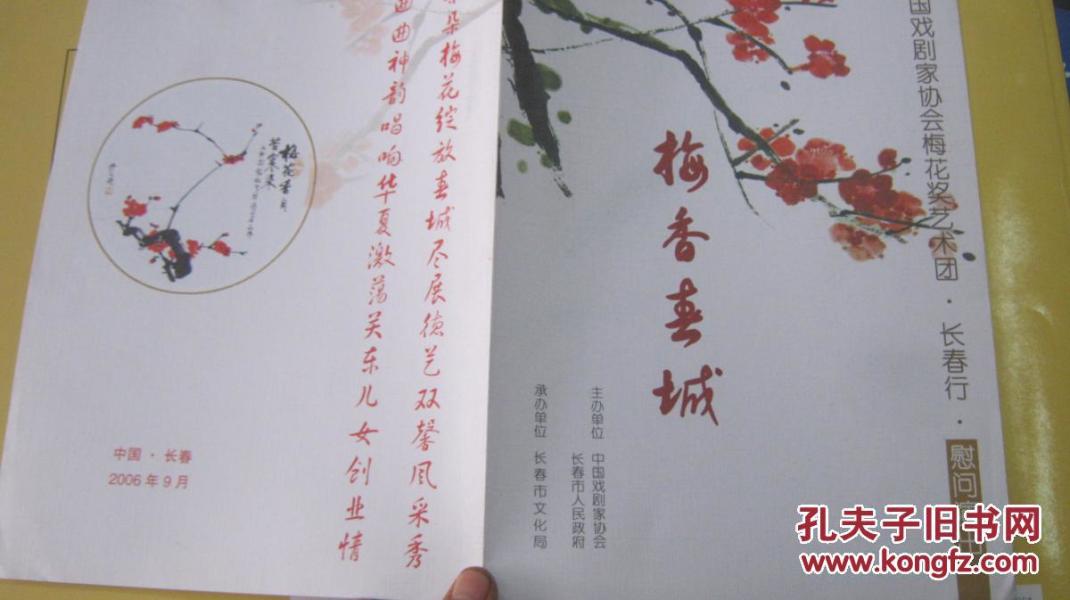 国戏剧家协会梅花奖艺术团·长春行·慰问演出
梅香春城
主办单位 中国戏剧家协会
长春市人民政府
承办单位 长春市文化局
朵梅花绽放春城尽展德艺双馨风采秀
曲曲神韵唱响华夏激荡关东儿女创业情
梅花香自
苦寒来
中国·长春
2006年9月
孔夫子旧书网
www.kongfz.com